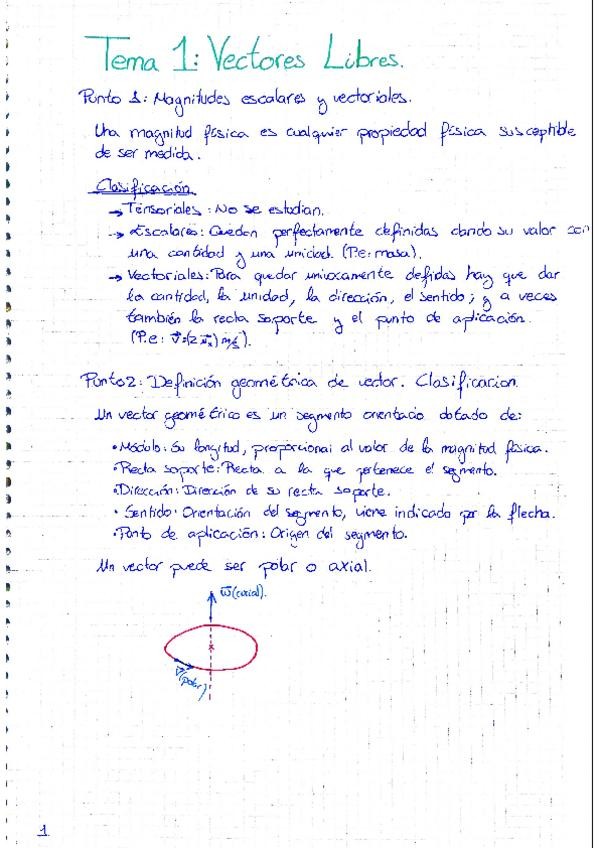 Tema 1: Vectores Libres.
Punto 1: Magnitudes escalares y vectoriales.
Una magnitud física es cualquier propiedad física susceptible
de ser medida.
Clasificación
→ Tensoriales: No se estudian.
→ Escalares: Quedan perfectamente definidas dando su valor con
una cantidad y una unidad. (P.e: masa).
→ Vectoriales: Para quedar univocamente defidas hay que dar
la cantidad, la unidad, la dirección, el sentido; y a veces
también la recta soporte y el punto de aplicación.
(P.e: v⃗=(2 u⃗ₓ) m/s).
Punto 2: Definición geométrica de vector. Clasificacion.
Un vector geométrico es un segmento orientado dotado de:
• Módulo: Su longitud, proporcional al valor de la magnitud física.
• Recta soporte: Recta a la que pertenece el segmento.
• Dirección: Dirección de su recta soporte.
• Sentido: Orientación del segmento, viene indicado por la flecha.
• Punto de aplicación: Origen del segmento.
Un vector puede ser polar o axial.
w⃗ (axial).
v⃗ (polar)
1